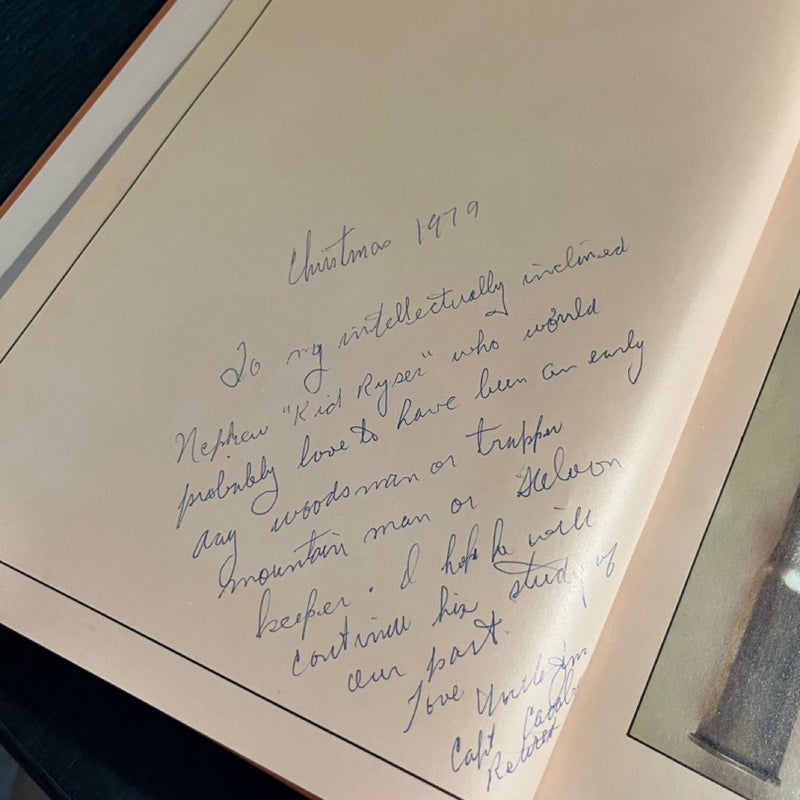 Christmas 1979
To my intellectually inclined
Nephew "Kid Ryser" who would
probably love to have been an early
day woodsman or trapper
mountain man or Saloon
keeper. I hope he will
continue his study of
our past.
Love Uncle Jim
Capt